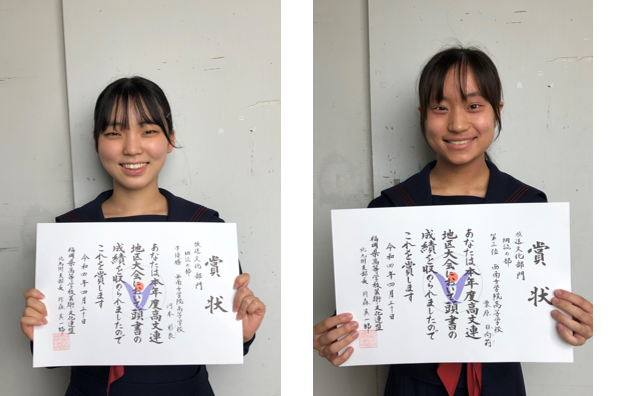 賞状
放送文化部門
朗読の部
準優勝 西南女学院高等学校
あなたは本年度高文連
地区大会において頭書の
成績を収められましたので
これを賞します
令和四年四月
福岡県高等学校芸術・文化連盟
北九州支部長
賞状
放送文化部門
朗読の部
第三位 西南女学院高等学校
日向
あなたは本年度高文連
地区大会において頭書の
成績を収められましたので
これを賞します
令和四年四月
福岡県高等学校芸術・文化連盟
北九州支部長